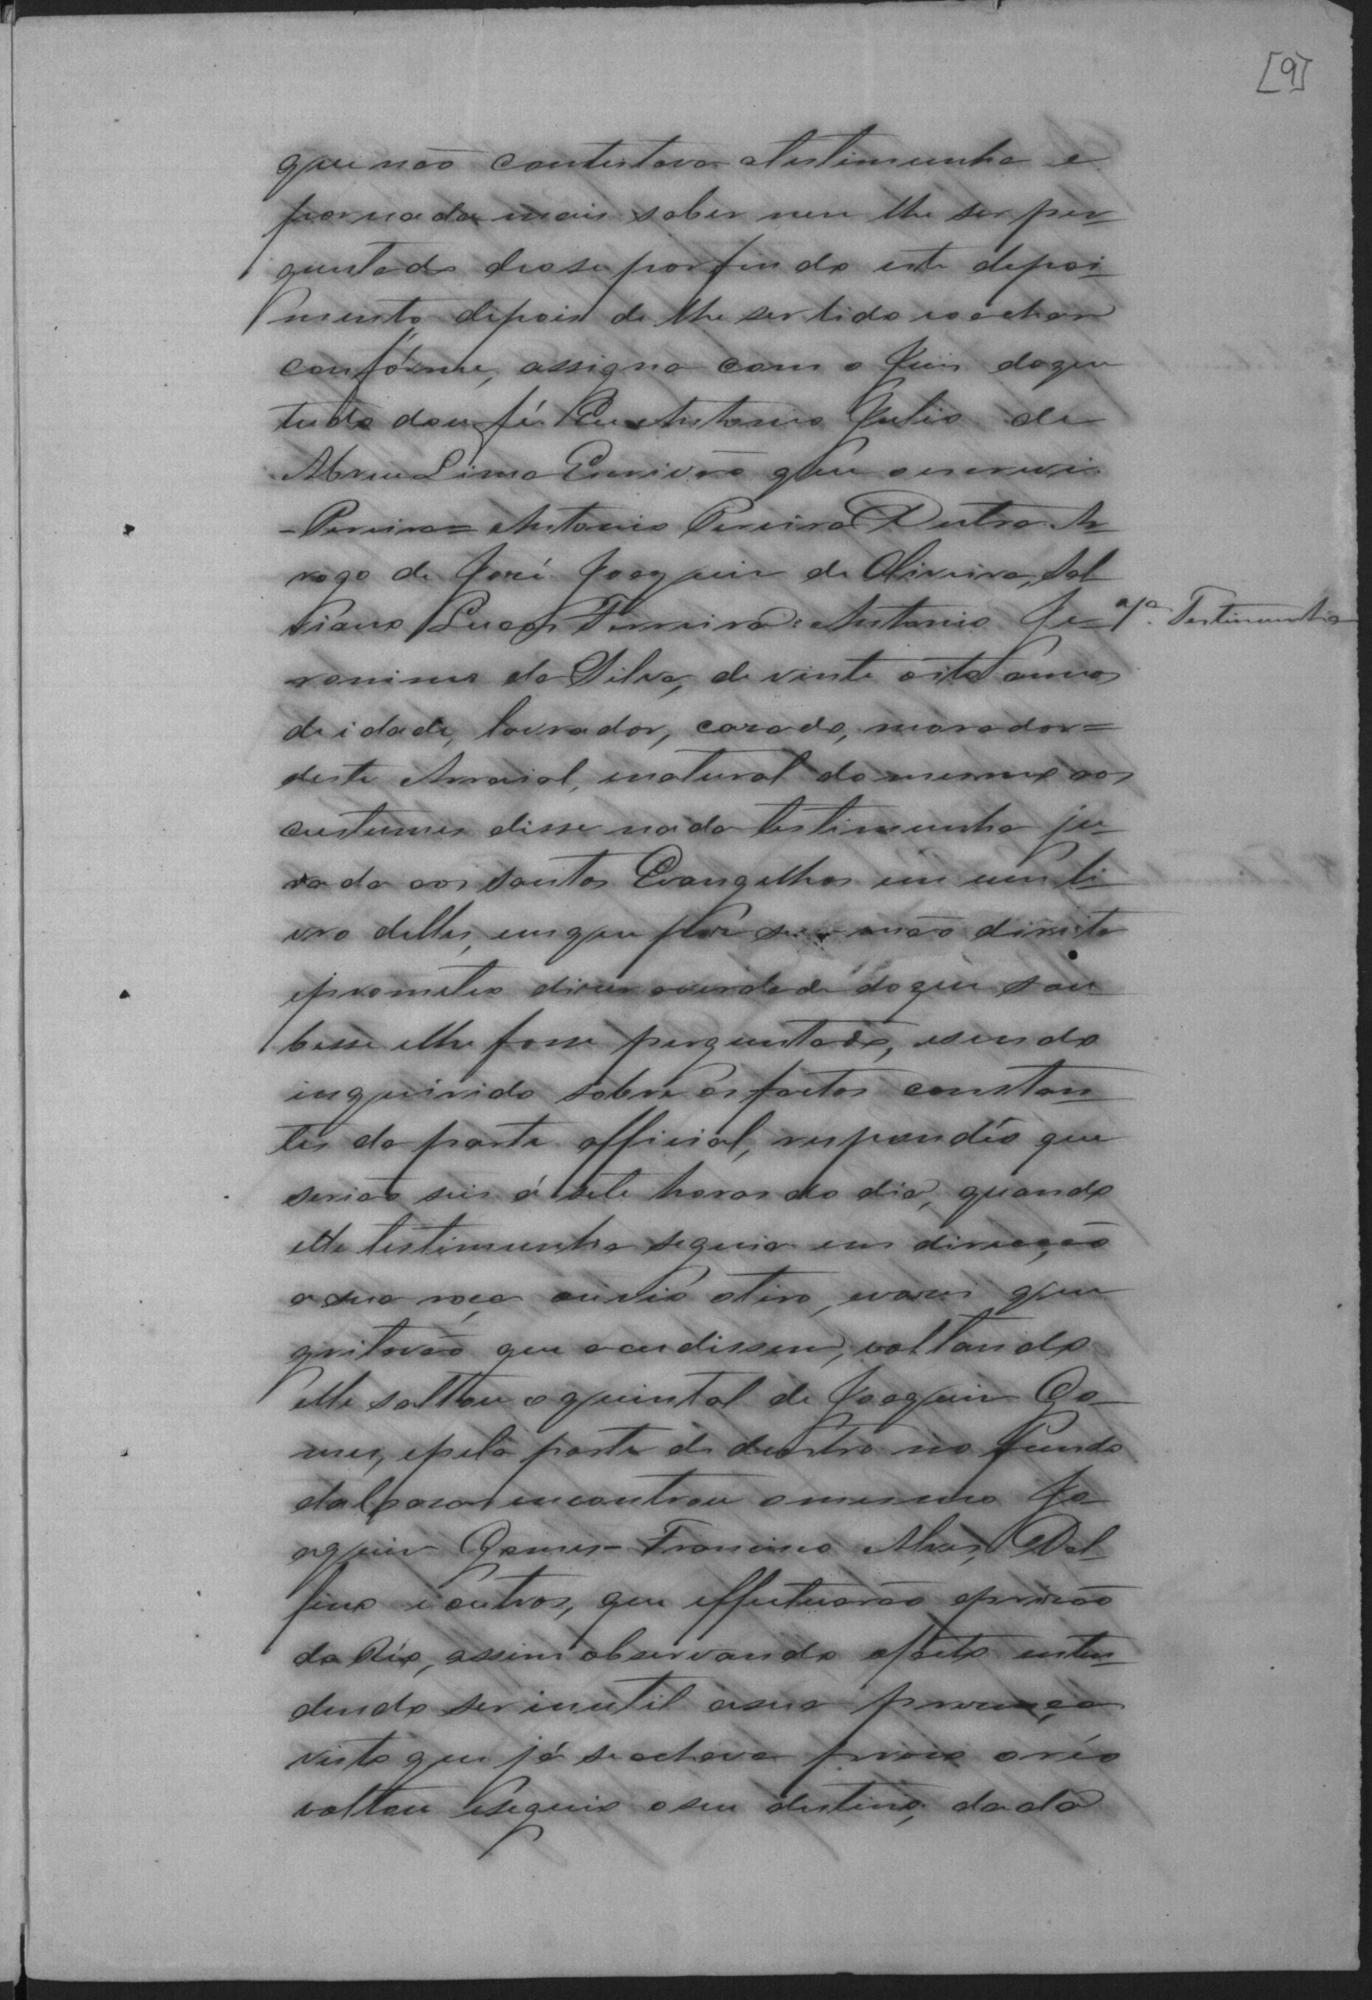 [9]
que não contestava a testimunha e
por nada mais saber nem lhe ser per-
guntado deose por findo este depoi-
mento depois de lhe ser lido e o achar
confórme, assigna com o Juis do que
tudo dou fé. Eu Antonio Julio de
Abreu Lima Escrivão que o escrevi
- Pereira = Antonio Pereira Dutra A
rogo de José Joaquim de Oliveira, Sal
viano Lucas Ferreira = Antonio Je-
Testimunha
ronimo da Silva, de vinte oito annos
de idade, lavrador, cazado, morador =
deste Arraial, e natural do mesmo aos
custumes disse nada testimunha ju-
rada aos Santos Evangelhos em um li-
vro delles, em que pôz sua mão direita
e prometeo dizer a verdade do que sou
besse e lhe fosse perguntado, e sendo
inquirido sobre os factos constan-
tes da parte official, respondêo que
serião seis á sete horas do dia, quando
elle testimunha seguia em direcção
a sua roça ouvio o tiro, e vozes que
gritavão que acudissem, voltando
elle saltou o quintal de Joaquim Go-
mes, e pela parte de dentro no fundo
da casa encontrou o mesmo Jo
aquim Gomes - Francisco Alves, Del
fino e outros, que effectuarão a prizão
do Réo, assim observando o facto enten-
dendo ser inutil a sua prezença
visto que já se achava prezo o réo
voltou e seguio o seu destino, dada